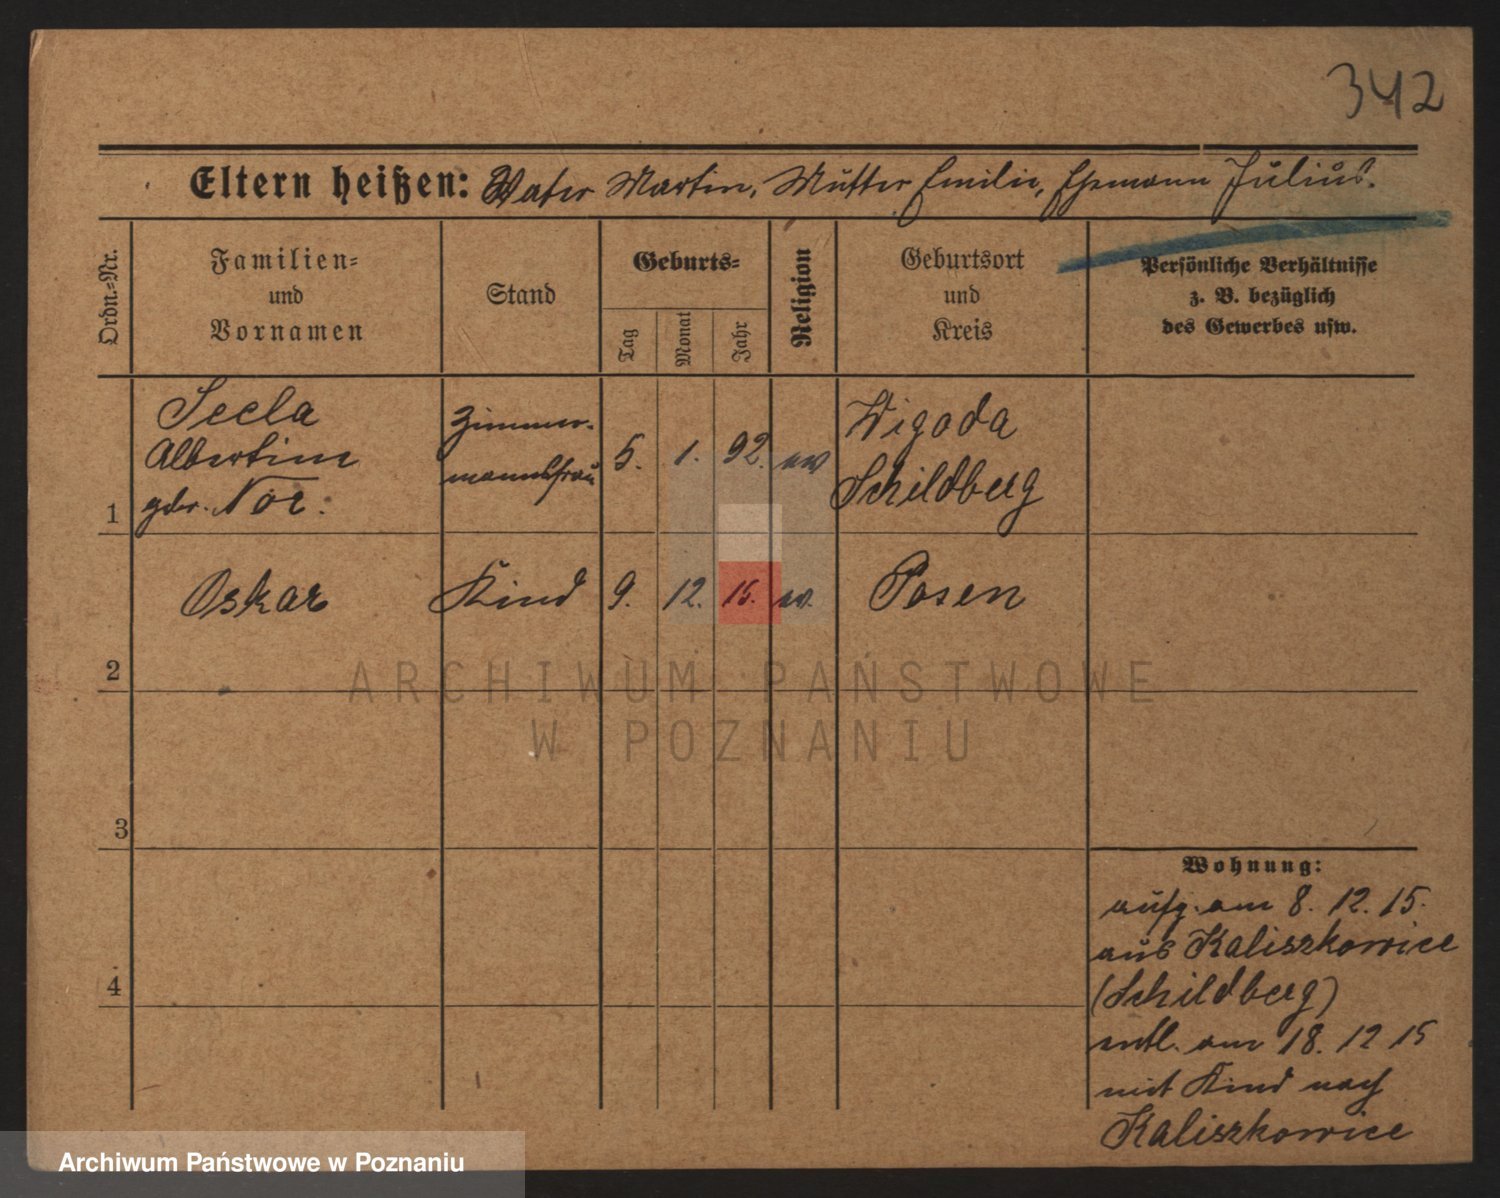 342
Eltern heißen: Vater Martin, Mutter Emilie, Ehemann Julius.
Ordn.-Nr.
Familien-
und
Vornamen
Stand
Geburts-
Tag
Monat
Jahr
Religion
Geburtsort
und
Kreis
Persönliche Verhältnisse
z. B. bezüglich
des Gewerbes usw.
1
Seela
Albertine
geb. Nor.
Zimmer-
mannsfrau
5.
1.
92.
ev
Wigoda
Schildberg
2
Oskar
Kind
9.
12.
15.
ev.
Posen
3
4
Wohnung:
aufg. am 8. 12. 15.
aus Kaliszkowice
(Schildberg)
entl. am 18. 12 15
mit Kind nach
Kaliszkowice
ARCHIWUM PAŃSTWOWE
W POZNANIU
Archiwum Państwowe w Poznaniu